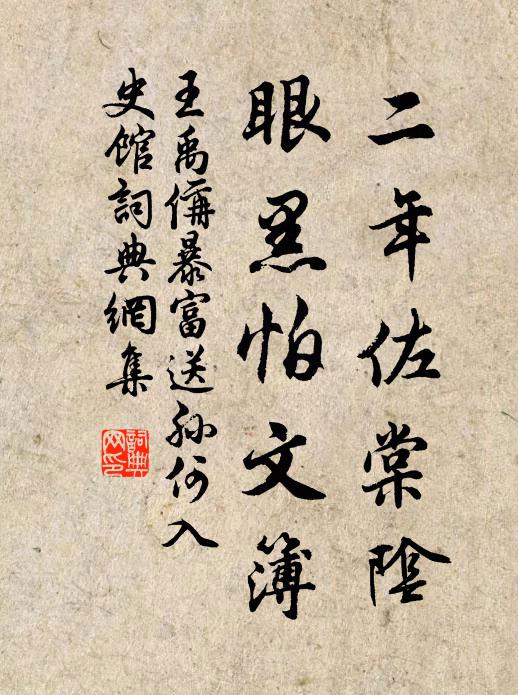 二年佐棠陰
眼黑怕文簿
王禹偁暴富送孫何入
史館詞典網集
詞典網印